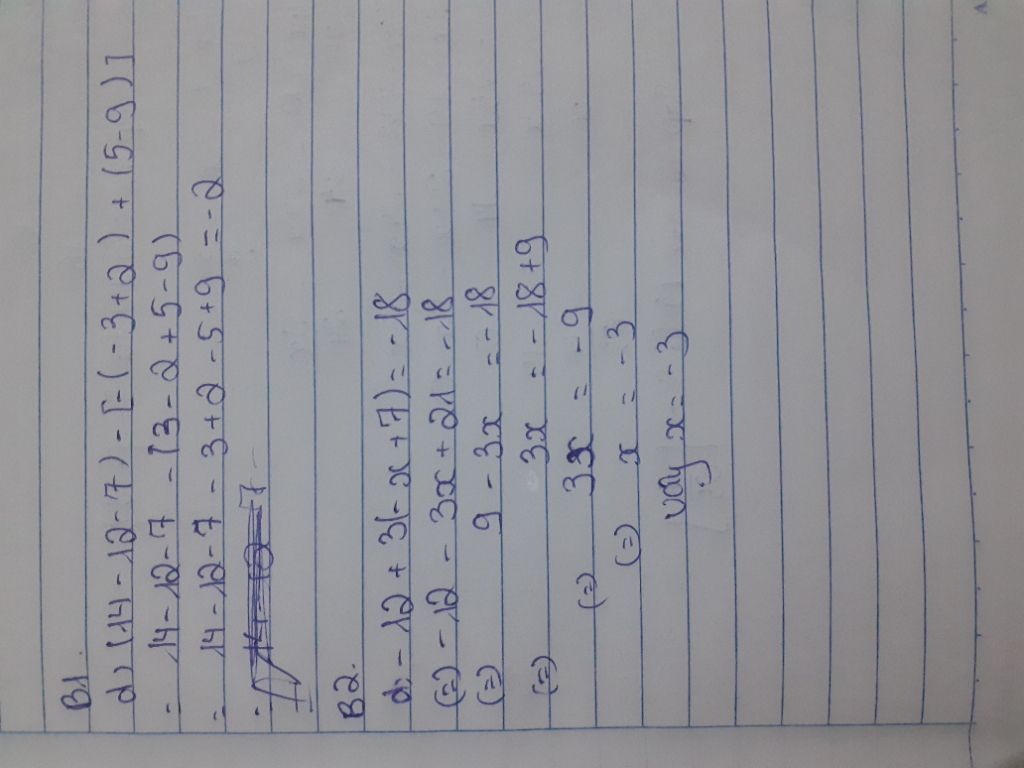 B1.
d) (14 - 12 - 7) - [- (-3 + 2) + (5 - 9)]
= 14 - 12 - 7 - (3 - 2 + 5 - 9)
= 14 - 12 - 7 - 3 + 2 - 5 + 9 = -2
B2.
d. - 12 + 3(- x + 7) = - 18
(=) - 12 - 3x + 21 = - 18
(=) 9 - 3x = - 18
(=) 3x = - 18 + 9
(=) 3x = - 9
(=) x = - 3
vậy x = - 3